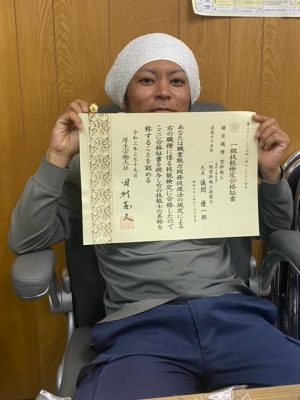 一級技能検定合格証書
検定職種 型枠施工
一級型枠施工技能士
氏名 儀間 優一郎
あなたは職業能力開発促進法の規定による
右の職種に係る技能検定に合格したので
ここに合格証書を授与し右の技能士の名称を
称することを認める
令和三年三月十九日
厚生労働大臣 田村憲久